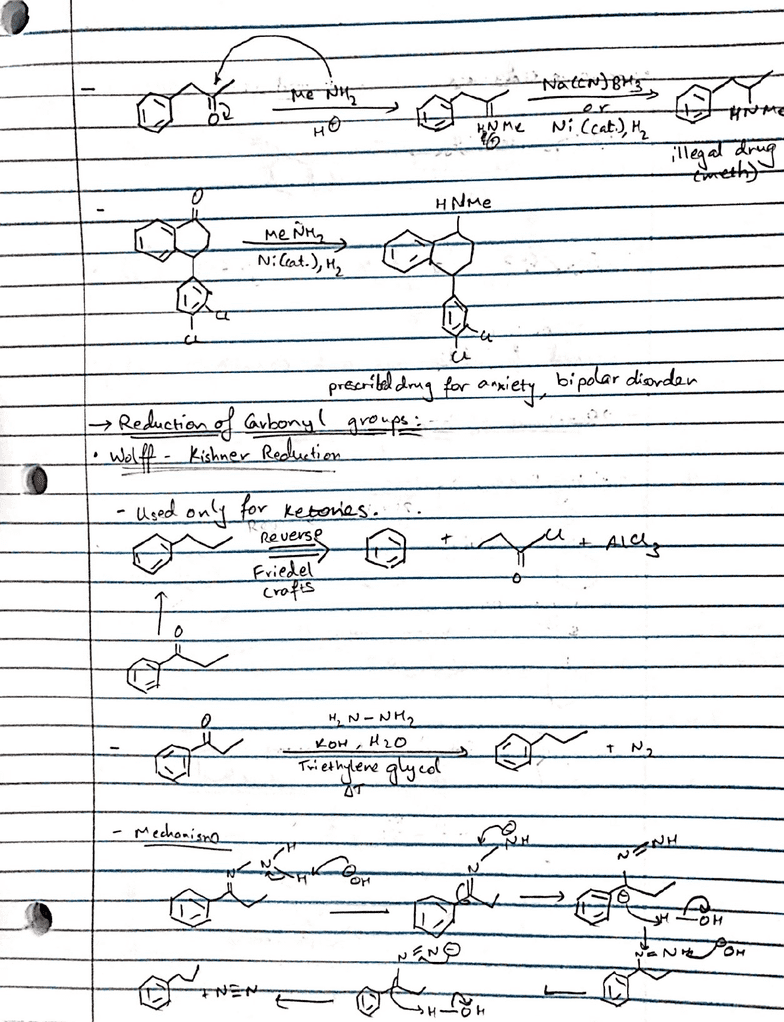 - O Me NH₂ H⊕ HNMe ⊕ Na(CN)BH₃ or Ni (cat.), H₂ HNMe
illegal drug
(meth)
- O Me N̈H₂ Ni(cat.), H₂ Cl Cl HNMe Cl Cl
prescribed drug for anxiety, bipolar disorder
→ Reduction of Carbonyl groups:
• Wolff - Kishner Reduction
- Used only for ketones.
Reverse Friedel crafts + Cl O + AlCl₃
O
- O H₂N-NH₂ KOH, H₂O Triethylene glycol ΔT + N₂
- Mechanism
N N H H ⊖OH N ⊖ NH N=NH ⊖ H-OH
N=NH ⊖OH
+ N≡N N=N⊖ H-OH